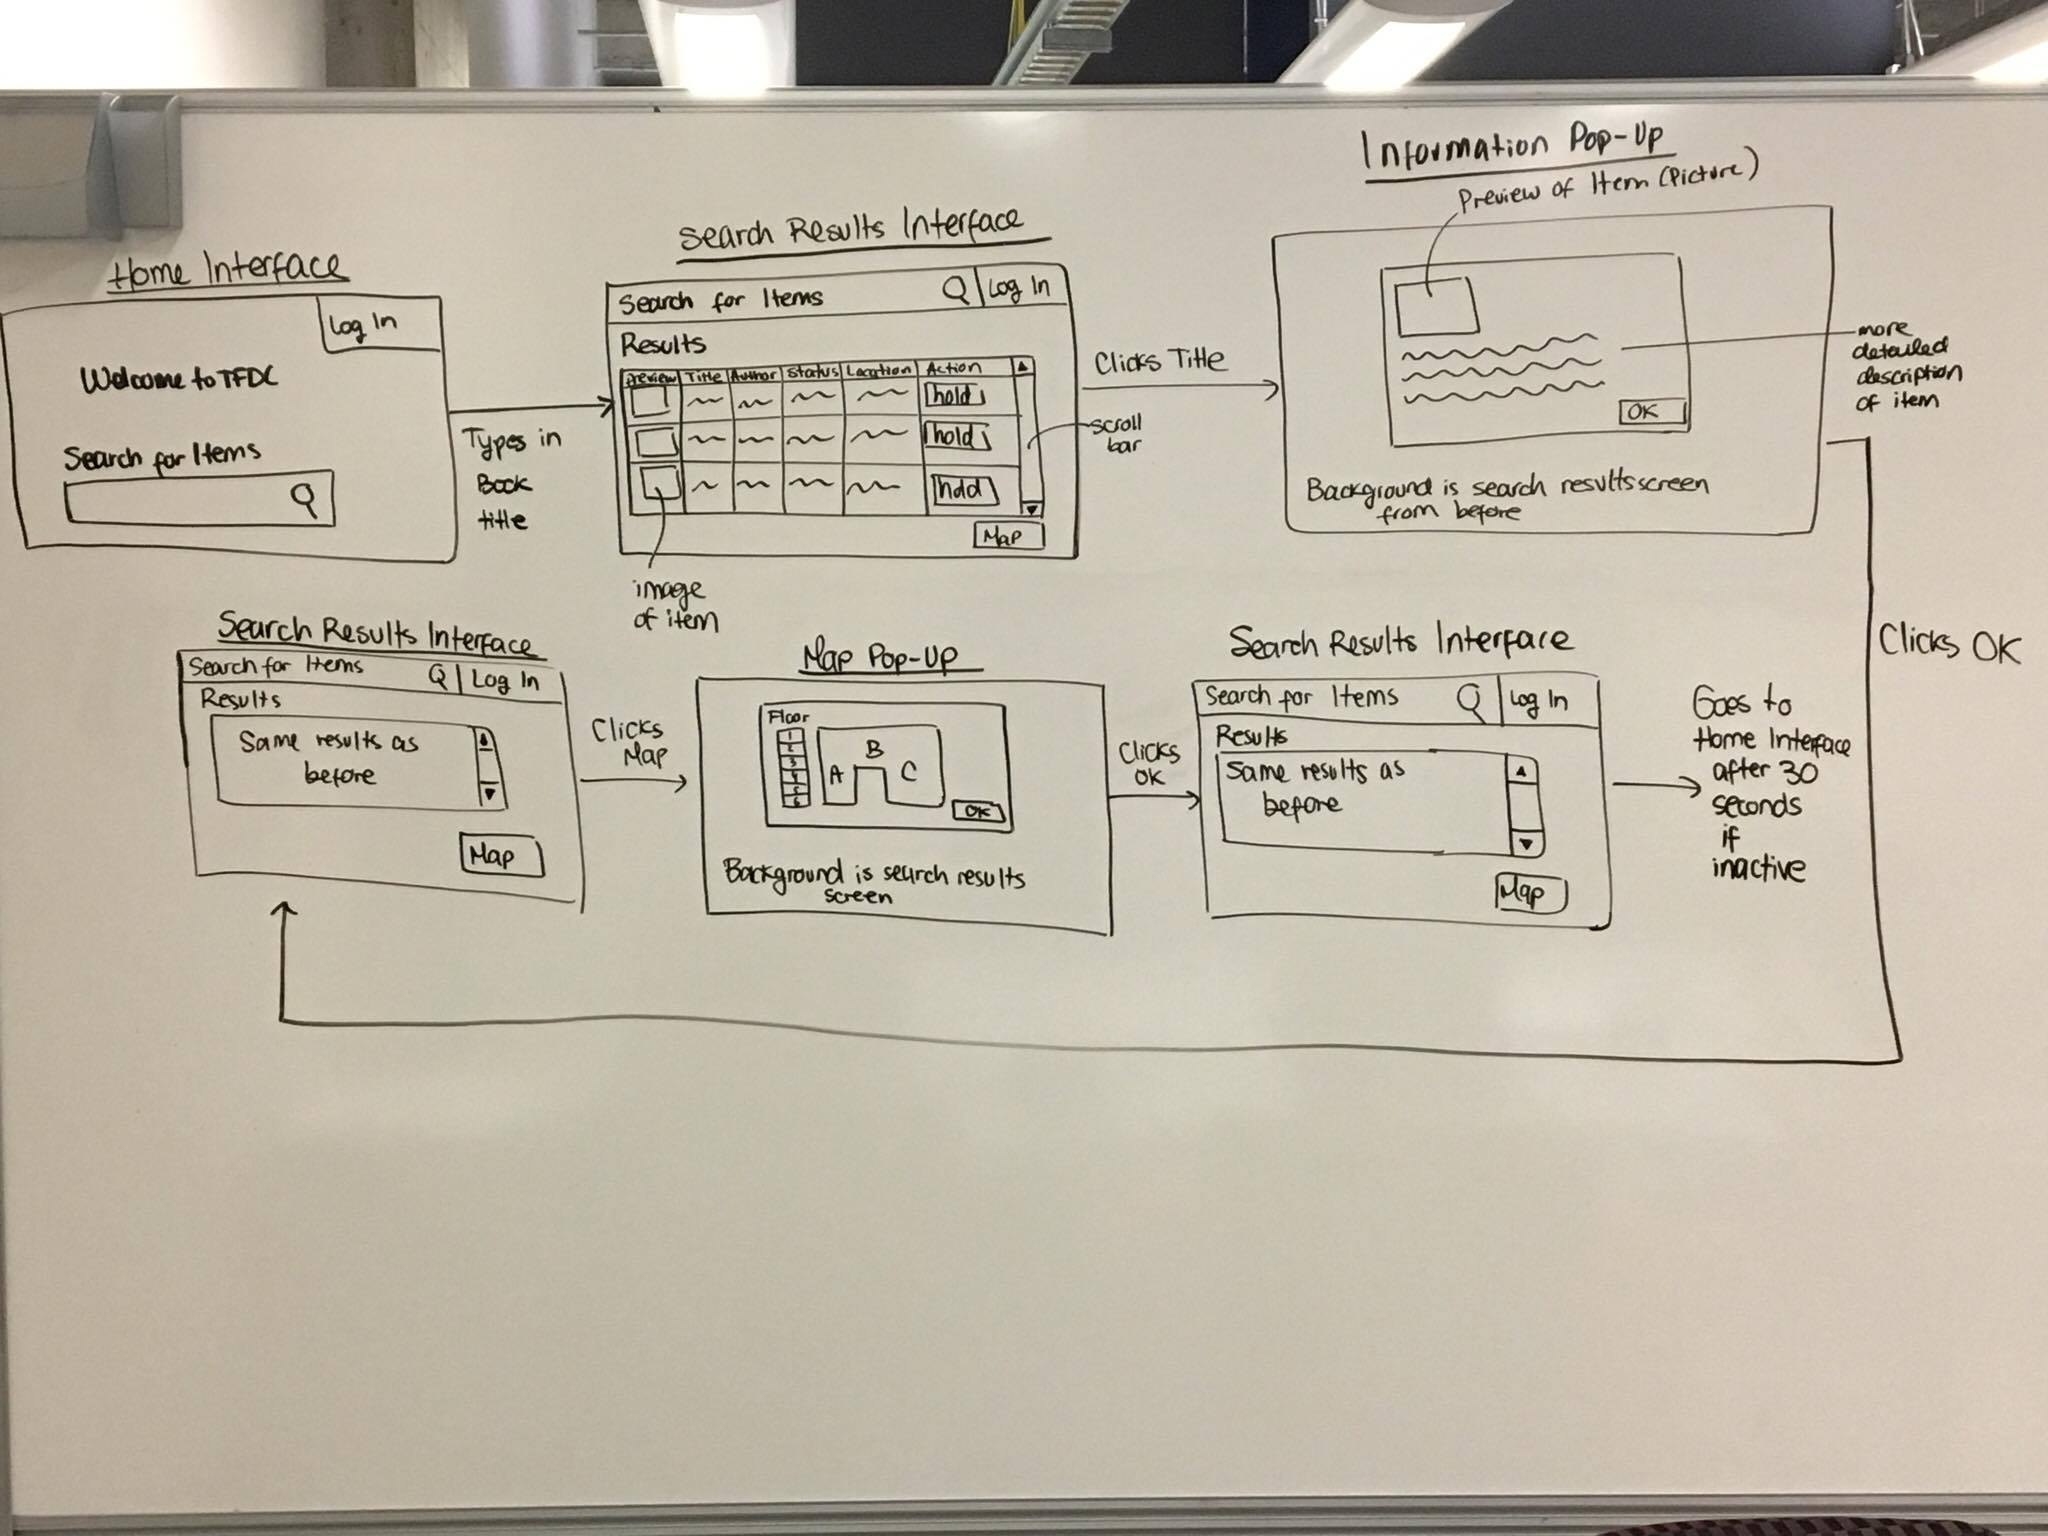 Home Interface
Log In
Welcome to TFDL
Search for Items
Types in
Book
title
Search Results Interface
Search for Items
Log In
Results
Preview Title Author Status Location Action
hold
hold
hold
Map
image
of item
scroll
bar
Clicks Title
Information Pop-Up
Preview of Item (Picture)
OK
more
detailed
description
of item
Background is search results screen
from before
Clicks OK
Search Results Interface
Search for Items
Log In
Results
Same results as
before
Map
Clicks
Map
Map Pop-Up
Floor
1
2
3
4
5
6
A
B
C
OK
Background is search results
screen
Clicks
OK
Search Results Interface
Search for Items
Log In
Results
Same results as
before
Map
Goes to
Home Interface
after 30
seconds
if
inactive